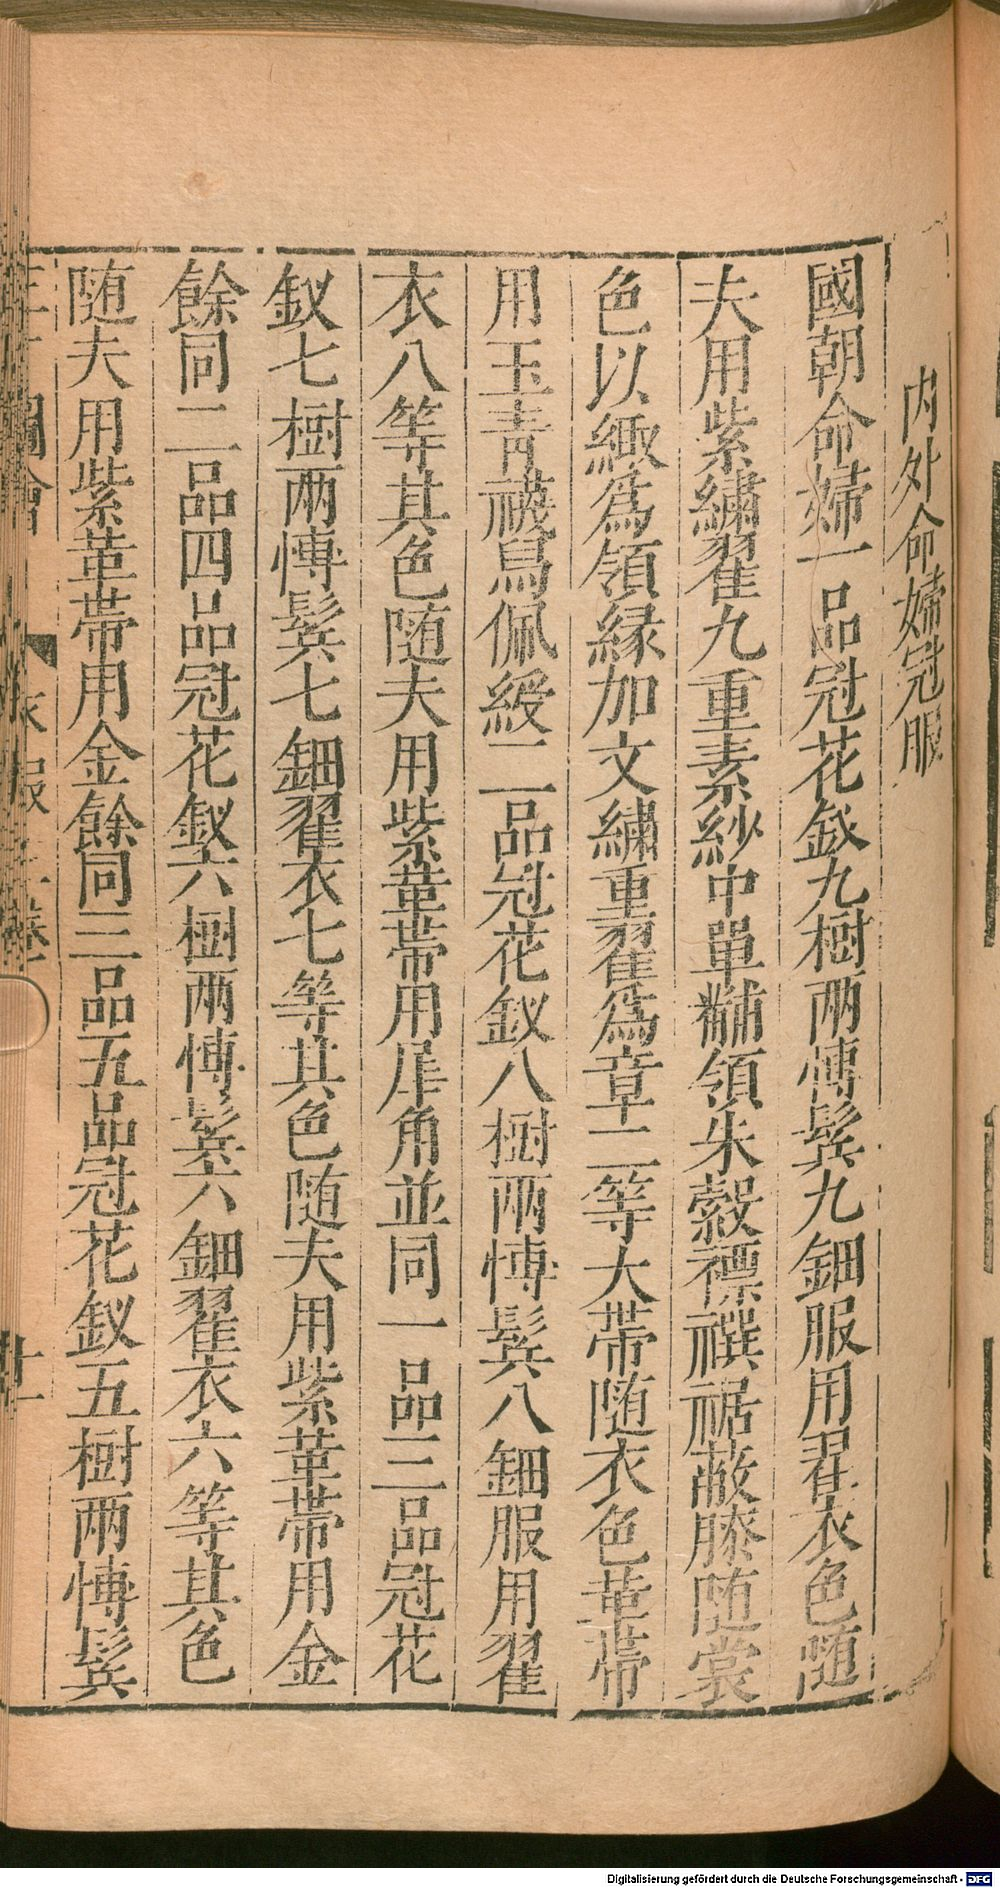 内外命婦冠服
國朝命婦一品冠花釵九樹兩博鬂九鈿服用翟衣色随
夫用紫繡翟九重素紗中單黼領朱縠褾襈裾蔽膝随裳
色以緅爲領縁加文繡重翟爲章二等大帶随衣色革帶
用玉青襪舄佩綬二品冠花釵八樹兩博鬂八鈿服用翟
衣八等其色随夫用紫革帶用犀角並同一品三品冠花
釵七樹兩博鬂七鈿翟衣七等其色随夫用紫革帶用金
餘同二品四品冠花釵六樹兩博鬂六鈿翟衣六等其色
随夫用紫革帶用金餘同三品五品冠花釵五樹兩博鬂
圖會 衣服二卷 廿一
Digitalisierung gefördert durch die Deutsche Forschungsgemeinschaft - DFG